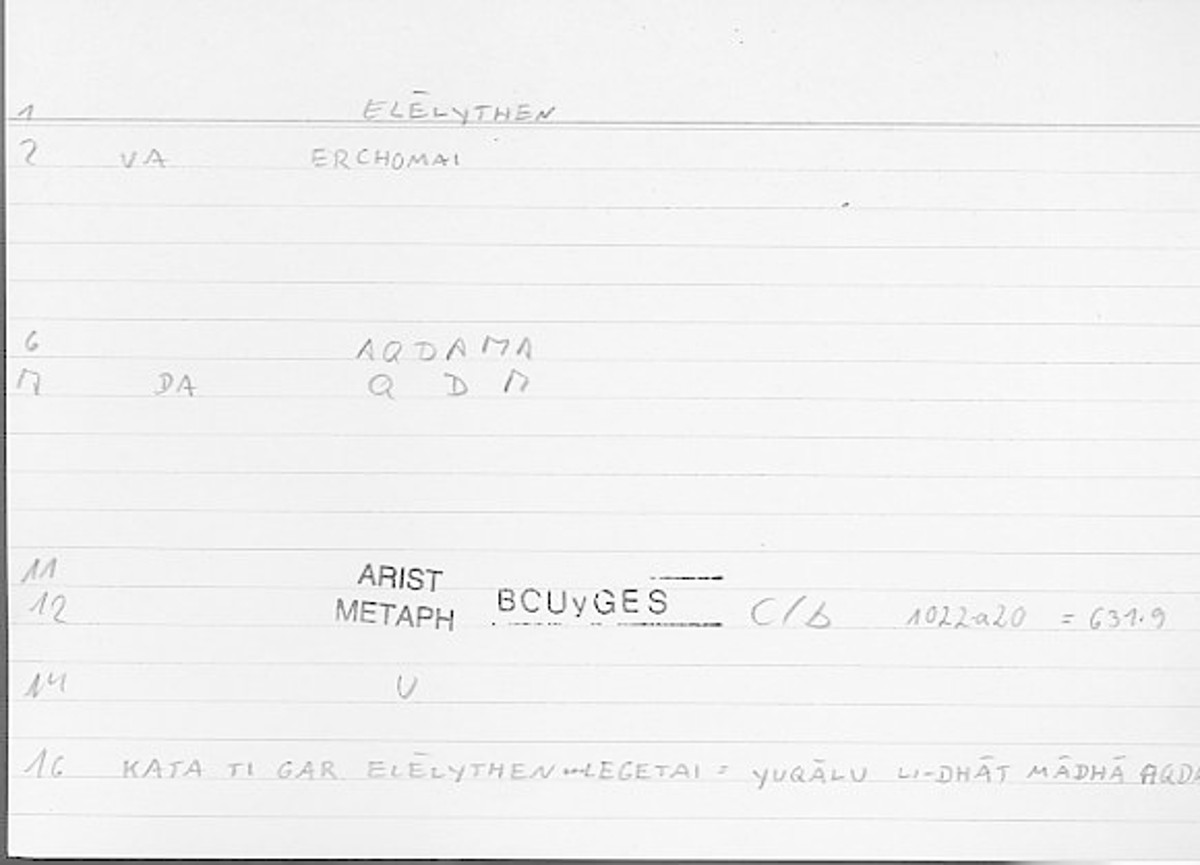 1 ELĒLYTHEN
2 VA ERCHOMAI
6 AQDAMA
7 DA Q D M
11 ARIST
12 METAPH BCUyGES C/b 1022a20 = 631.9
14 V
16 KATA TI GAR ELĒLYTHEN LEGETAI = YUQĀLU LI-DHĀT MĀDHĀ AQDA